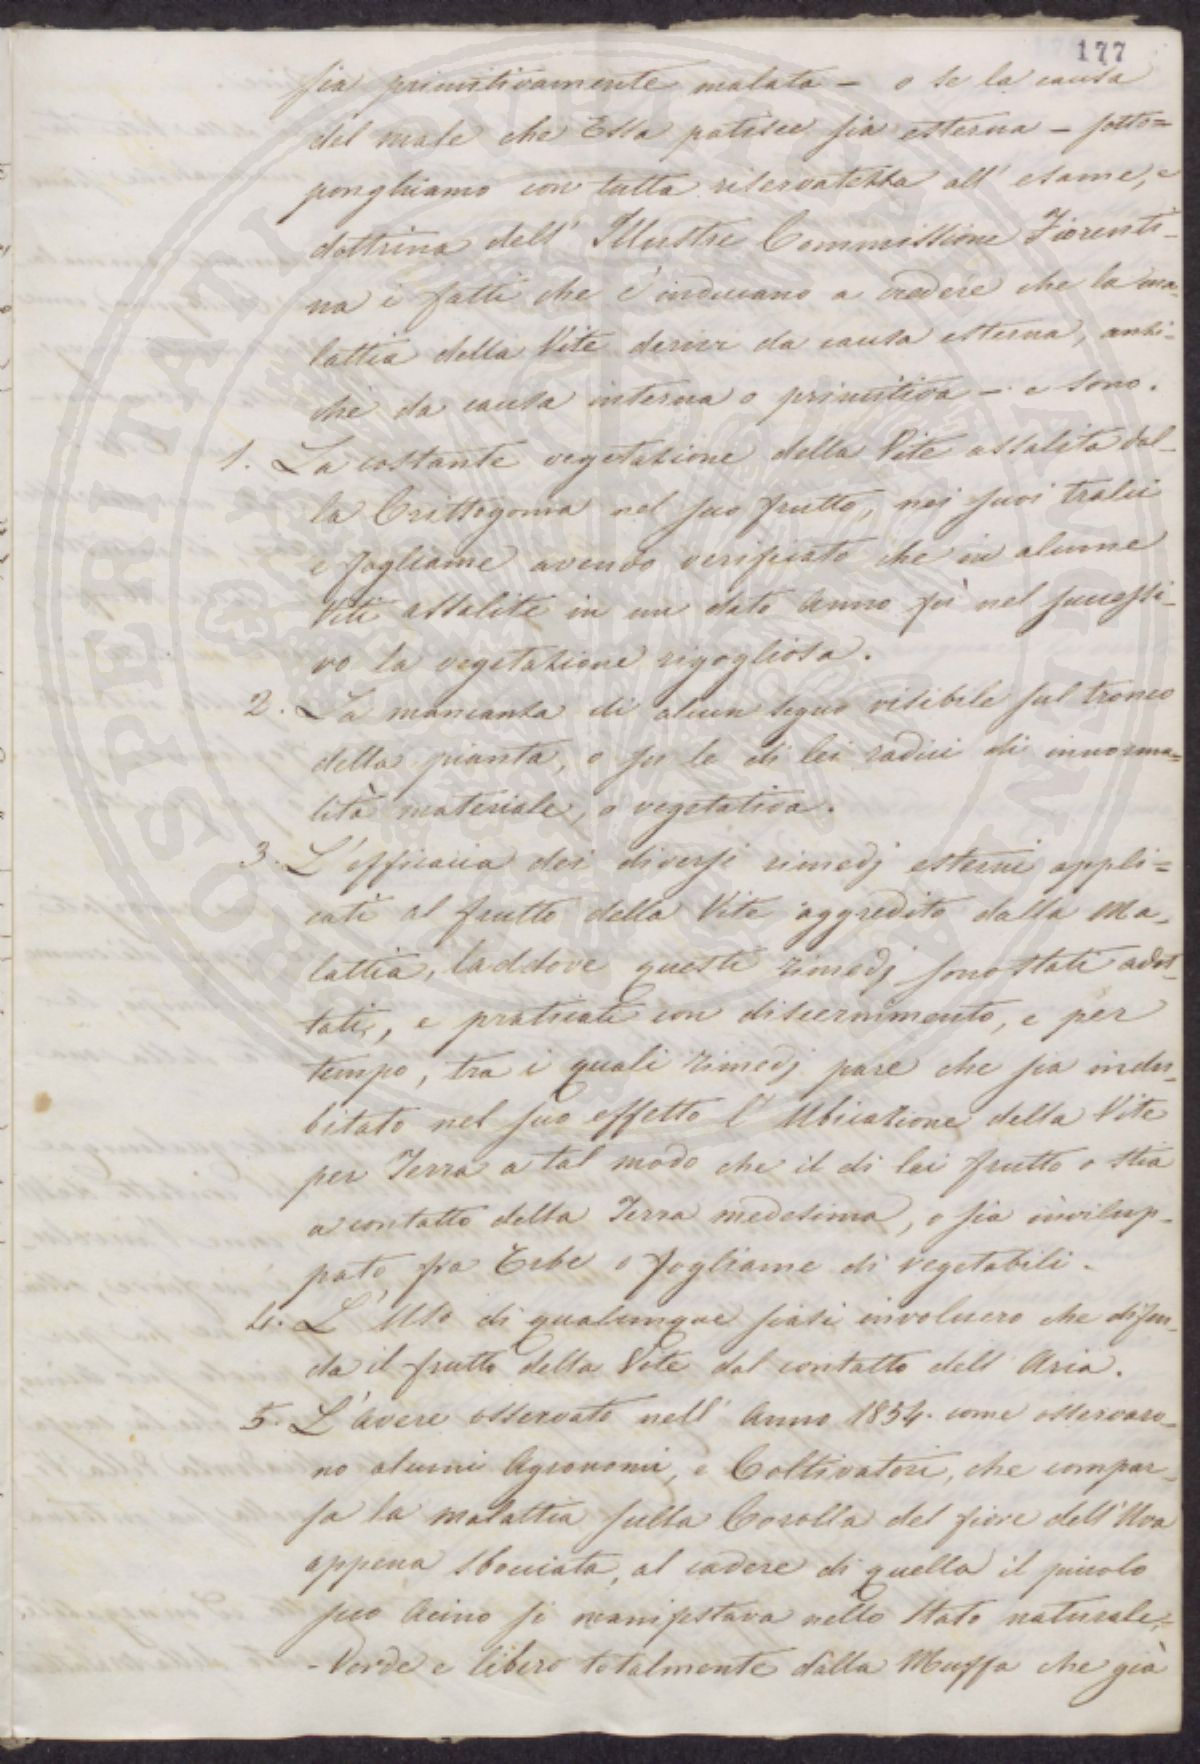 177
sia primitivamente malata – o se la causa
del male che Essa patisce sia esterna – sotto=
ponghiamo con tutta riservatezza all' esame, e
dottrina dell' Illustre Commissione Fiorenti-
na i fatti che c' inducano a credere che la ma-
lattia della Vite derivi da causa esterna, anzi-
chè da causa interna o primitiva – e sono.
1. La costante vegetazione della Vite assalita dal-
la Crittogama nel suo frutto, nei suoi tralci
e fogliame avendo verificato che in alcune
Viti assalite in un dato Anno fù nel successi-
vo la vegetazione rigogliosa.
2. La mancanza di alcun segno visibile sul tronco
della pianta, o su le di lei radici di innorma=
lità materiale, o vegetativa.
3. L'efficacia dei diversi rimedj esterni appli=
cati al frutto della Vite aggredito dalla Ma-
lattia, laddove questi rimedj sono stati adot-
tati, e praticati con discernimento, e per
tempo, tra i quali rimedj pare che sia indu-
bitato nel suo effetto l' Ubicazione della Vite
per Terra a tal modo che il di lei frutto o stia
a contatto della Terra medesima, o sia invilup-
pato fra Erbe o fogliame di vegetabili.
4. L' Uso di qualunque siasi involucro che difen-
da il frutto della Vite dal contatto dell' Aria.
5. L' avere osservato nell' Anno 1854. come osservaro-
no alcuni Agronomi, e Coltivatori, che compar-
sa la malattia sulla Corolla del fiore dell' Uva
appena sbocciata, al cadere di quella il piccolo
suo Acino si manifestava nello stato naturale,
- Verde e libero totalmente dalla Muffa che già
PROSPERITATI PUBLICAE